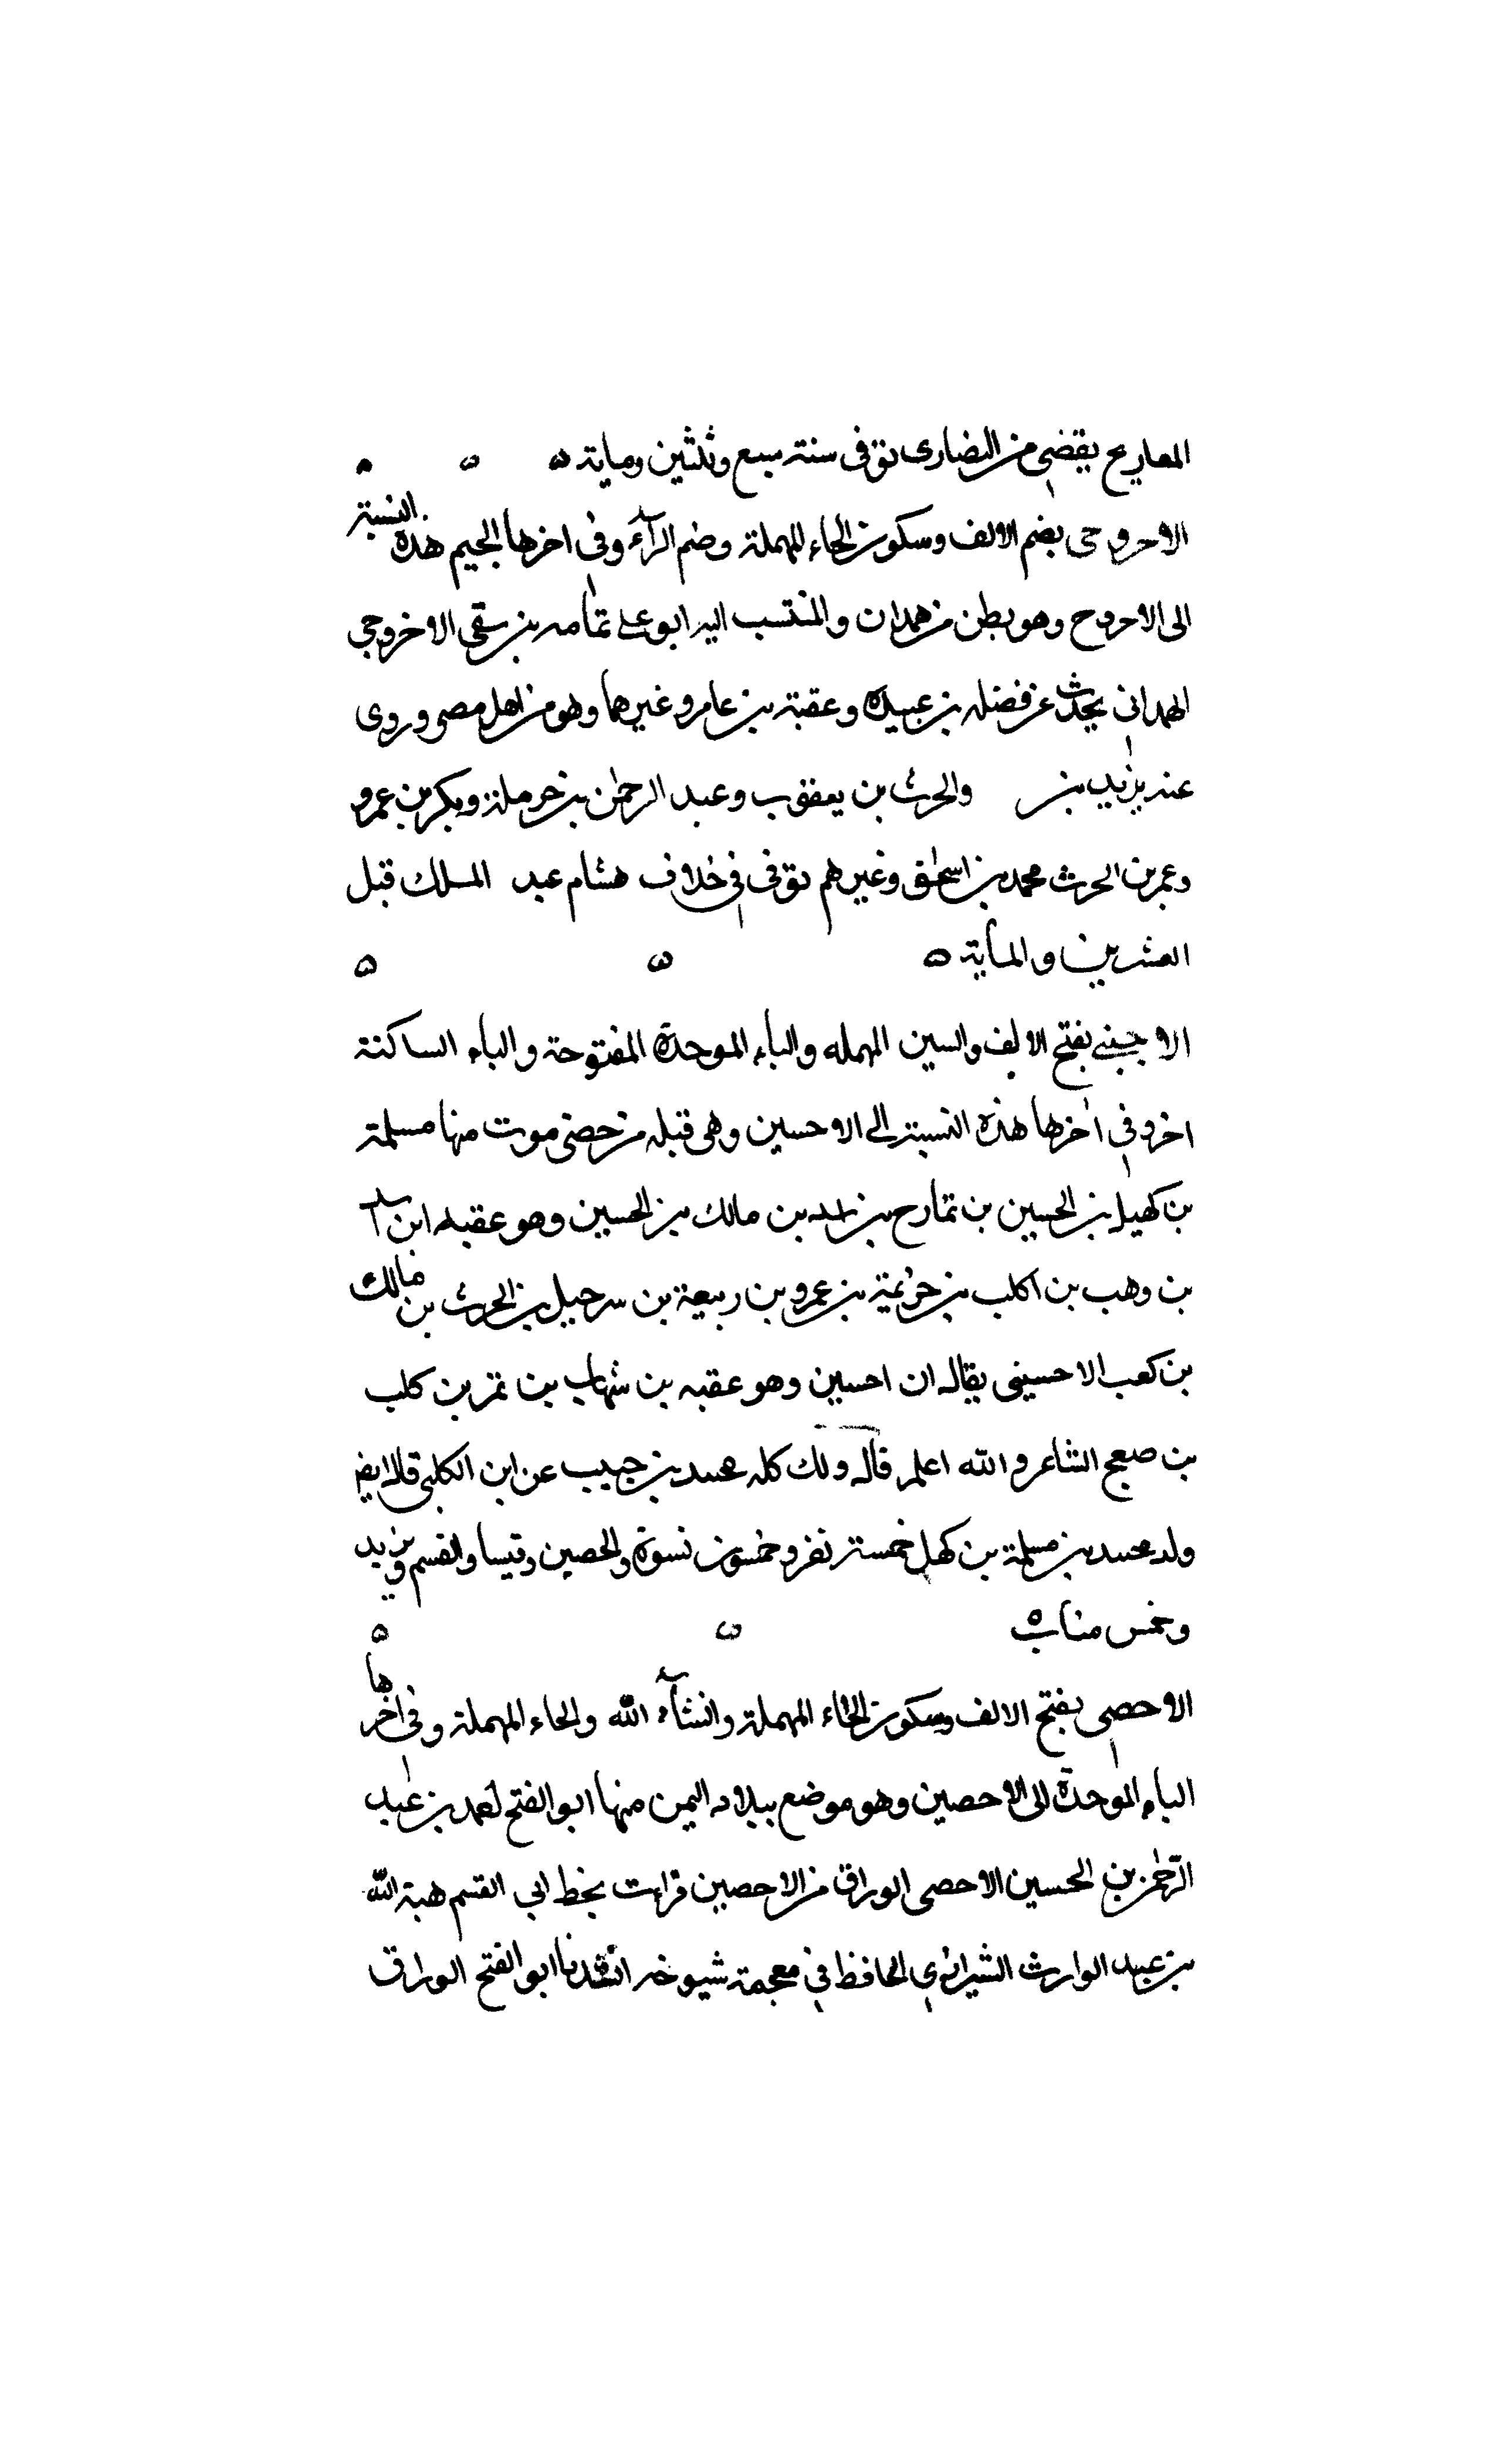 المعاريج يقضى من النصارى توفى سنة سبع وثلثين وماية ه ه ه
الاحروجى بضم الالف وسكون الحاء المهملة وضم الرآء وفى اخرها الجيم هذه النسبة
الى الاحروح وهو بطن من همدان والمنتسب اليه ابو على ثمامه بن سقى الاخروجى
الهمدانى يحدث عن فضله بن عبيده وعقبة بن عامر وغيرهما وهو من اهل مصر وروى
عنه يزيد بن والحرث بن يعقوب وعبد الرحمن بن حرملة وبكر بن عمرو
وعمر بن الحرث محمد بن اسحق وغيرهم توفى فى خلاف هشام عبد الملك قبل
العشرين والماية ه ه ه
الاحسنى بفتح الالف والسين المهمله والباء الموحدة المفتوحة والياء الساكنة
اخر وفى اخرها هذه النسبة الى الاحسين وهى قبله من حضرموت منها مسلمة
بن كهيل بن الحسين بن تمارح بن اسد بن مالك بن الحسين وهو عقبه ابن
بن وهب بن اكلب بن حزيمة بن عمرو بن ربيعة بن سرحيل بن الحرث بن مالك
بن كعب الاحسينى يقال ان احسين وهو عقبه بن شهاب بن نمر بن كلب
بن صعح الشاعر والله اعلم قال ولك كله محمد بن حبيب عن ابن الكلبى قال ايض
ولد محمد بن مسلمة بن كهل خمسة نفر وخسون نسوة والحصين وقيسا والقسم ويزيد
وخمس منات ه ه ه
الاحصى بفتح الالف وسكون الحاء المهملة وانشآء الله والحاء المهملة وفى اخرها
الباء الموحدة الى الاحصين وهو موضع ببلاد اليمن منها ابو الفتح لعمد بن عبد
الرحمن بن الحسين الاحصى الوراق من الاحصين قرات بخط ابى القسم هبة الله
بن عبد الوارث الشيرازى الحافظ فى معجمة شيوخه انشدنا ابو الفتح الوراق